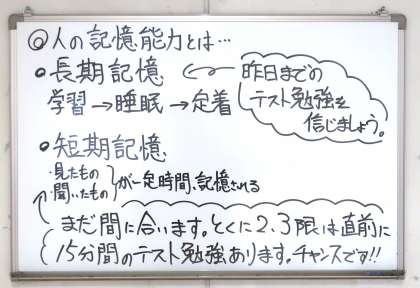 ◎人の記憶能力とは…
・長期記憶
学習→睡眠→定着
昨日までの
テスト勉強を
信じましょう。
・短期記憶
・見たもの
・聞いたもの
が一定時間、記憶される
まだ間に合います。とくに2、3限は直前に
15分間のテスト勉強あります。チャンスです!!